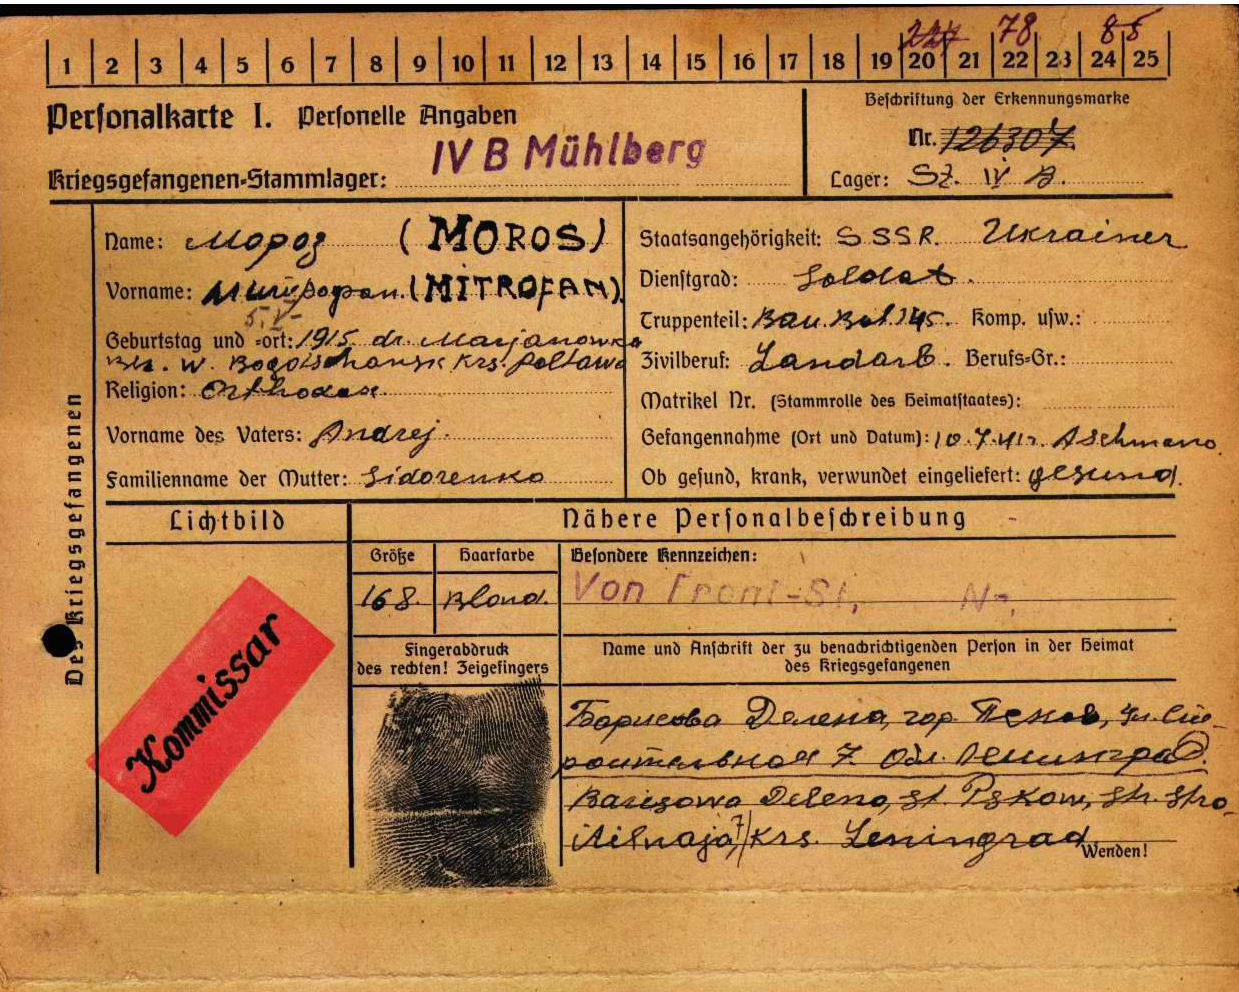 227 78 85
1 2 3 4 5 6 7 8 9 10 11 12 13 14 15 16 17 18 19 20 21 22 23 24 25
Personalkarte I. Personelle Angaben
Kriegsgefangenen-Stammlager: IV B Mühlberg
Beschriftung der Erkennungsmarke
Nr. 126307
Lager: St. IV B.
Des Kriegsgefangenen
Name: Мороз (MOROS)
Vorname: Митрофан. (MITROFAN)
5. V.
Geburtstag und -ort: 1915. dr. Marjanowka
W. Krs. Poltawa
Religion: Orthodox.
Vorname des Vaters: Andrej.
Familienname der Mutter: Sidorenko
Staatsangehörigkeit: SSSR. Ukrainer
Dienstgrad: Soldat.
Truppenteil: Bau. Bat. 145. Komp. usw.:
Zivilberuf: Landarb. Berufs-Gr.:
Matrikel Nr. (Stammrolle des Heimatstaates):
Gefangennahme (Ort und Datum): 10.7.41. Aschmano
Ob gesund, krank, verwundet eingeliefert: gesund.
Lichtbild
Kommissar
Nähere Personalbeschreibung
Größe Haarfarbe Besondere Kennzeichen:
168. Blond. Von Front-St. N
Fingerabdruck
des rechten! Zeigefingers
Name und Anschrift der zu benachrichtigenden Person in der Heimat
des Kriegsgefangenen
Борисова Делена, гор. Псков, ул. Ст-
роительная 7. Обл. Ленинград.
Barisowa Delena, st. Pskow, str. Stro-
itelnaja, 7 Krs. Leningrad.
Wenden!